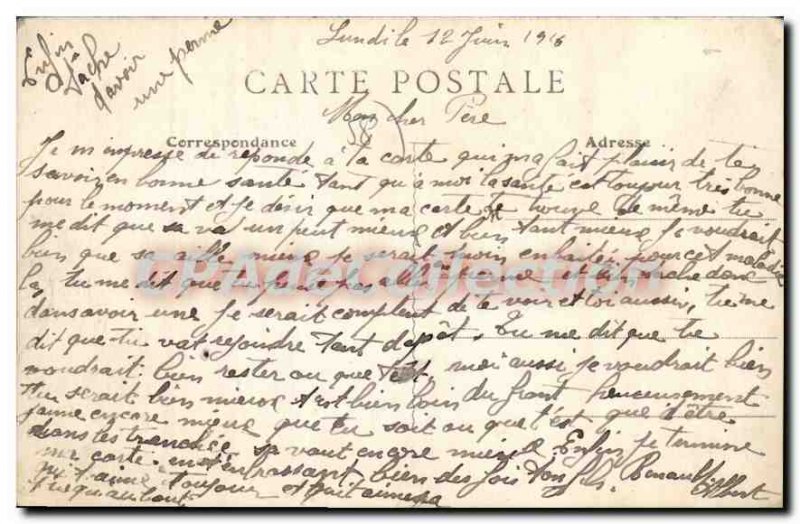 Lundi le 12 Juin 1916
Enfin
Tache
d'avoir
une perme
CARTE POSTALE
Mon cher Père
58
Correspondance
Adresse
Je m'impresse de reponde à ta carte qui m'a fait plaisir de te
savoir en bonne santé tant qu'à moi la santé est toujour très bonne
pour le moment et je désir que ma carte te trouve de même tu
me dit que sa va un peut mieux et bien tant mieux je voudrait
bien que sa aille mieux je serait moin pour cet maladie
la, tu me dit que tu pense pas aller en perme et bien tache donc
dans avoir une je serait complent de te voir et toi aussi, tu me
dit que tu vat rejoindre tant depôt. Tu me dit que tu
voudrait bien rester ou que t'est moi aussi je voudrait bien
tu serait bien mieux t'est bien loin du front heureusement
jaime encore mieux que tu soit ou que t'est que d'être
dans tes tranchée sa vaut encore mieux. Enfin je termine
ma carte en t'embrassant bien des fois ton fils. Renault Albert
qui t'aime toujour et
jusqu'au bout
CPADeCollection